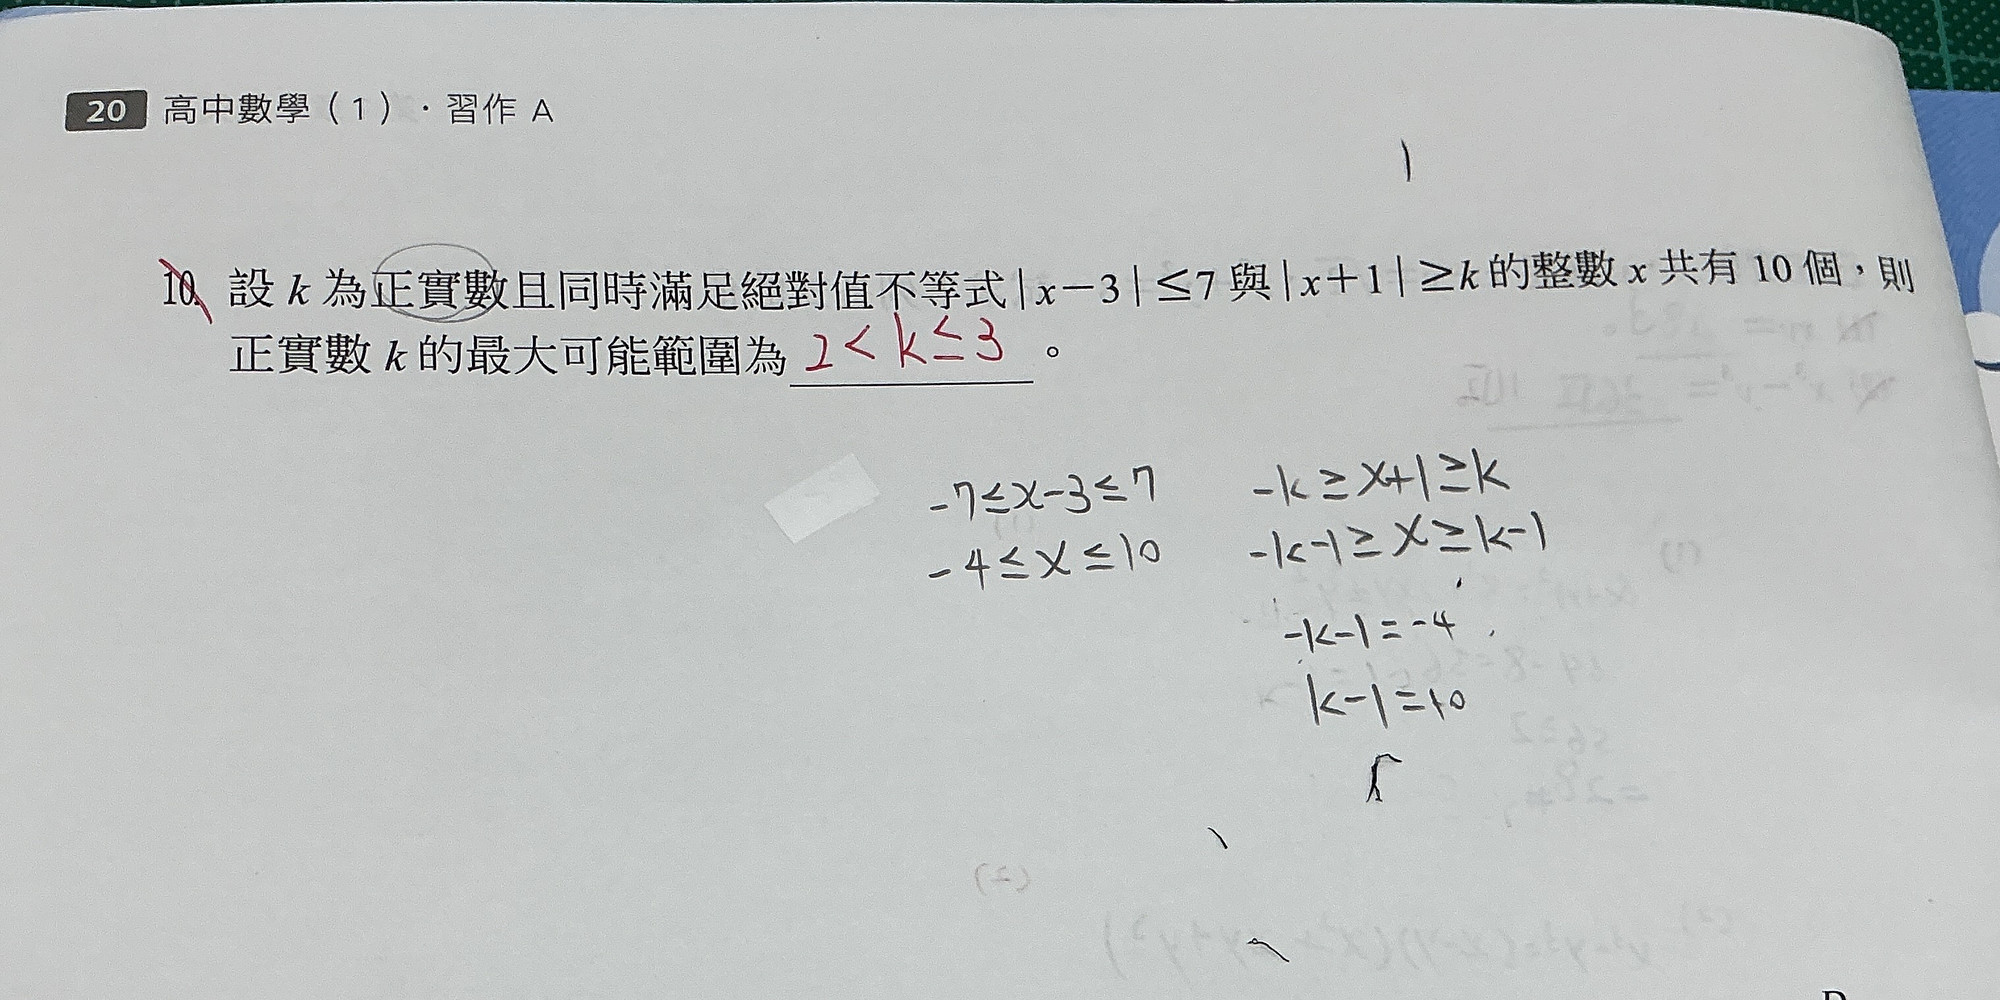 20 高中數學（1）．習作 A
10. 設 k 為正實數且同時滿足絕對值不等式|x－3|≤7 與|x＋1|≥k 的整數 x 共有 10 個，則
正實數 k 的最大可能範圍為 2<k≤3 。
-7≤x-3≤7
-4≤x≤10
-k≥x+1≥k
-k-1≥x≥k-1
-k-1=-4
k-1=10